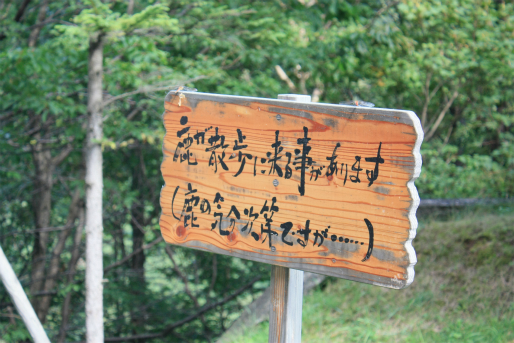 鹿が散歩に来る事があります
(鹿の気分次第ですが……)